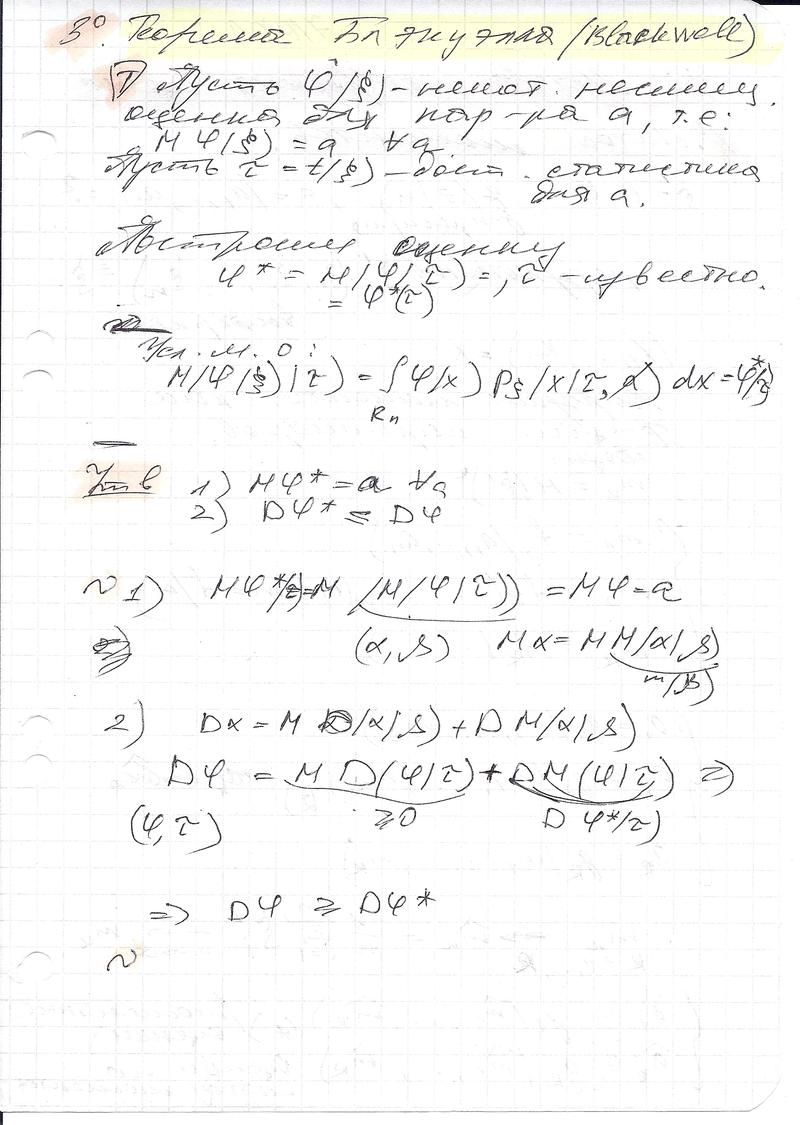 3° Теорема Блэкуэлла (Blackwell)
Ⓣ Пусть φ(ξ) – некот. несмещ.
оценка для пар-ра a, т.е:
M φ(ξ) = a ∀a
Пусть τ = t(ξ) – дост. статистика
для a.
Построим оценку
φ* = M(φ|τ) =, τ – известно.
= φ*(τ)
Усл. м. о:
M(φ(ξ)|τ) = ∫ φ(x) Pξ(x|τ, a) dx = φ*(τ)
Rn
Утв 1) Mφ* = a ∀a
2) Dφ* ≤ Dφ
~ 1) Mφ*(τ) = M (M(φ|τ)) = Mφ = a
(α, β) Mα = M M(α|β)
m(β)
2) Dα = M D(α|β) + D M(α|β)
Dφ = M D(φ|τ) + D M(φ|τ) ⇒
(φ, τ) ≥0 D φ*(τ)
⇒ Dφ ≥ Dφ*
~